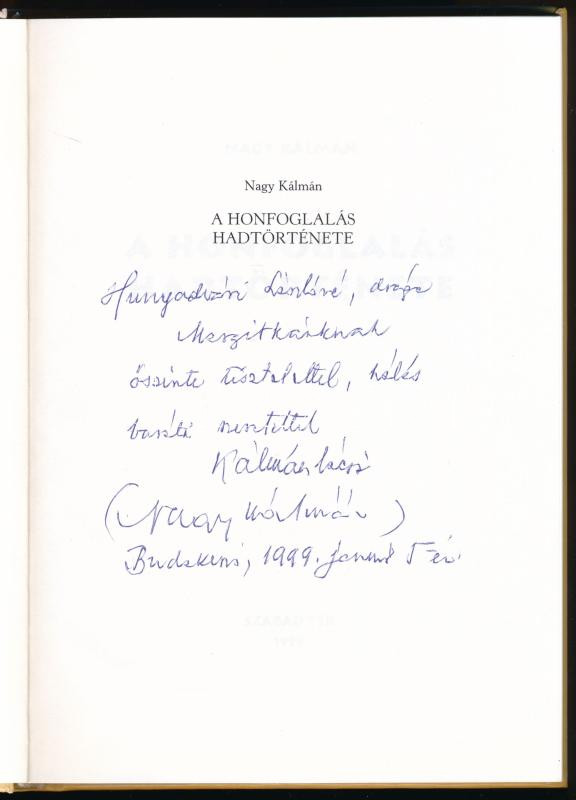 Nagy Kálmán
A HONFOGLALÁS
HADTÖRTÉNETE
Hunyadvári Lászlóné, drága
őszinte tisztelettel, hálás
baráti szeretettel
Kálmán bácsi
(Nagy Kálmán)
Budakeszi, 1999. 5-én.
SZABAD TÉR